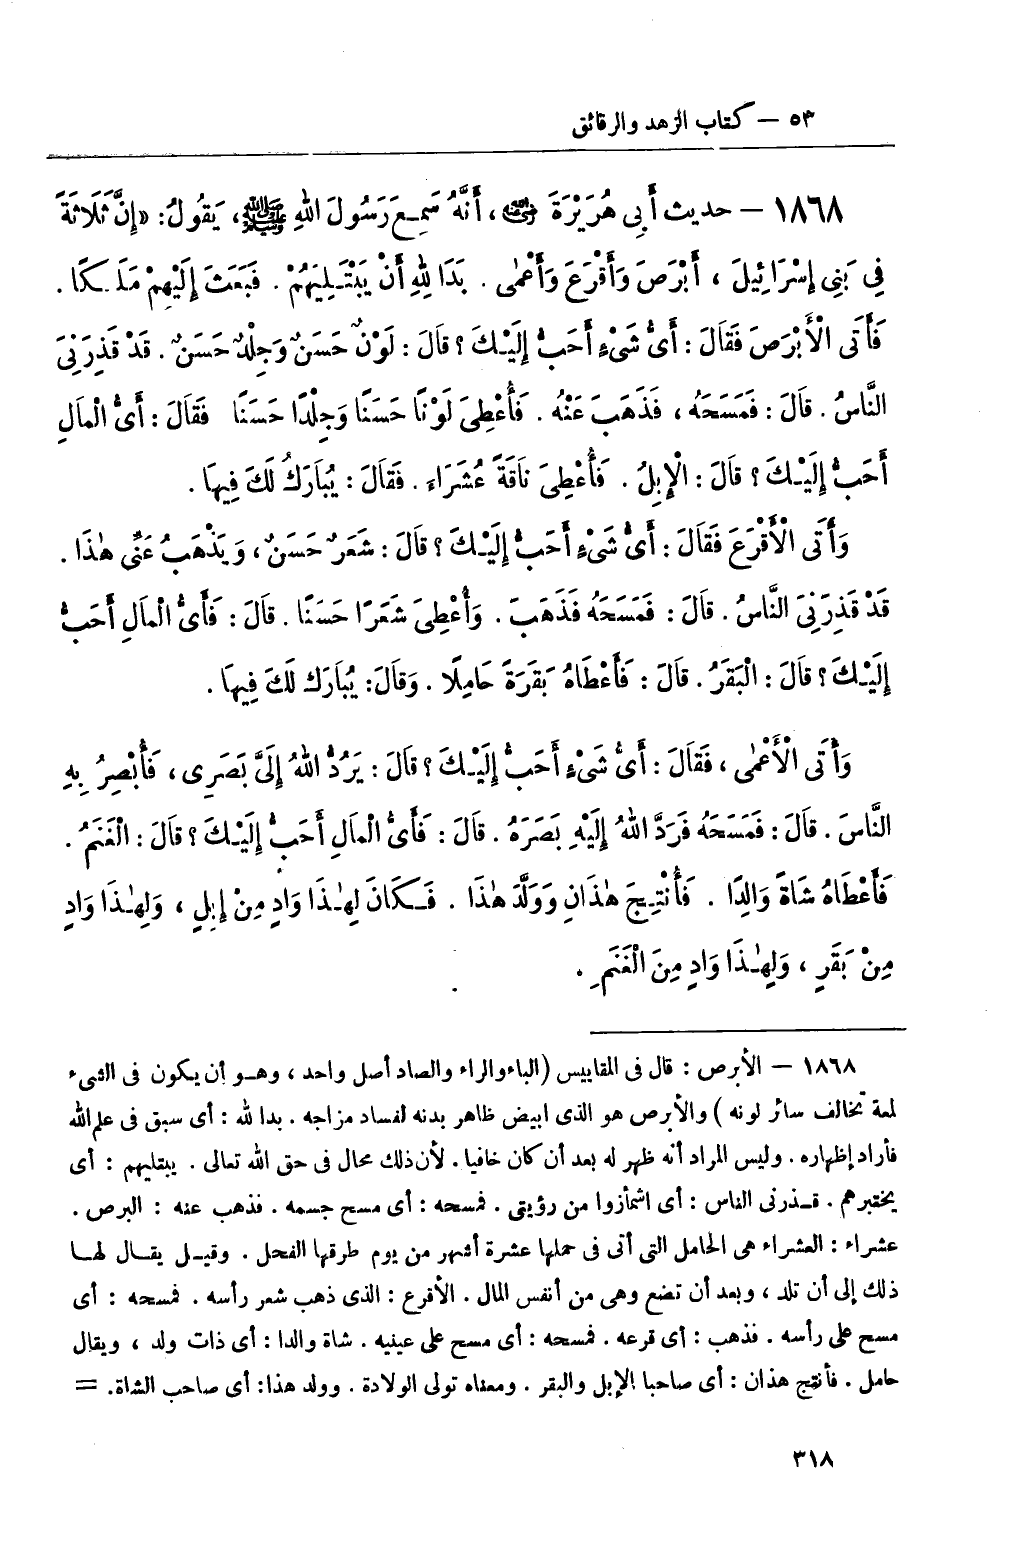 ٥٣ – كتاب الزهد والرقائق
١٨٦٨ – حديث أَبِي هُرَيْرَةَ رضي الله عنه، أَنَّهُ سَمِعَ رَسُولَ اللهِ ﷺ، يَقُولُ: «إِنَّ ثَلَاثَةً
فِي بَنِي إِسْرَائِيلَ ، أَبْرَصَ وَأَقْرَعَ وَأَعْمٰى . بَدَا لِلهِ أَنْ يَبْتَلِيَهُمْ . فَبَعَثَ إِلَيْهِمْ مَلَكًا .
فَأَتَى الْأَبْرَصَ فَقَالَ : أَىُّ شَىْءٍ أَحَبُّ إِلَيْكَ ؟ قَالَ : لَوْنٌ حَسَنٌ وَجِلْدٌ حَسَنٌ . قَدْ قَذِرَنِىَ
النَّاسُ . قَالَ : فَمَسَحَهُ ، فَذَهَبَ عَنْهُ . فَأُعْطِىَ لَوْنًا حَسَنًا وَجِلْدًا حَسَنًا فَقَالَ : أَىُّ الْمَالِ
أَحَبُّ إِلَيْكَ ؟ قَالَ : الْإِبِلُ . فَأُعْطِىَ نَاقَةً عُشَرَاءَ . فَقَالَ : يُبَارَكُ لَكَ فِيهَا .
وَأَتَى الْأَقْرَعَ فَقَالَ : أَىُّ شَىْءٍ أَحَبُّ إِلَيْكَ ؟ قَالَ : شَعَرٌ حَسَنٌ ، وَيَذْهَبُ عَنِّى هٰذَا .
قَدْ قَذِرَنِىَ النَّاسُ . قَالَ : فَمَسَحَهُ فَذَهَبَ . وَأُعْطِىَ شَعَرًا حَسَنًا . قَالَ : فَأَىُّ الْمَالِ أَحَبُّ
إِلَيْكَ ؟ قَالَ : الْبَقَرُ . قَالَ : فَأَعْطَاهُ بَقَرَةً حَامِلًا . وَقَالَ : يُبَارَكُ لَكَ فِيهَا .
وَأَتَى الْأَعْمٰى ، فَقَالَ : أَىُّ شَىْءٍ أَحَبُّ إِلَيْكَ ؟ قَالَ : يَرُدُّ اللهُ إِلَىَّ بَصَرِى ، فَأُبْصِرُ بِهِ
النَّاسَ . قَالَ : فَمَسَحَهُ فَرَدَّ اللهُ إِلَيْهِ بَصَرَهُ . قَالَ : فَأَىُّ الْمَالِ أَحَبُّ إِلَيْكَ ؟ قَالَ : الْغَنَمُ .
فَأَعْطَاهُ شَاةً وَالِدًا . فَأُنْتِجَ هٰذَانِ وَوَلَّدَ هٰذَا . فَكَانَ لِهٰذَا وَادٍ مِنْ إِبِلٍ ، وَلِهٰذَا وَادٍ
مِنْ بَقَرٍ ، وَلِهٰذَا وَادٍ مِنَ الْغَنَمِ .
١٨٦٨ – الأبرص : قال فى المقاييس (الباء والراء والصاد أصل واحد ، وهو أن يكون فى الشىء
لمعة تخالف سائر لونه ) والأبرص هو الذى ابيض ظاهر بدنه لفساد مزاجه . بدا لله : أى سبق فى علم الله
فأراد إظهاره . وليس المراد أنه ظهر له بعد أن كان خافيا . لأن ذلك محال فى حق الله تعالى . يبتليهم : أى
يختبرهم . قذرنى الناس : أى اشمأزوا من رؤيتى . فمسحه : أى مسح جسمه . فذهب عنه : البرص .
عشراء : العشراء هى الحامل التى أتى فى حملها عشرة أشهر من يوم طرقها الفحل . وقيل يقال لها
ذلك إلى أن تلد ، وبعد أن تضع وهى من أنفس المال . الأقرع : الذى ذهب شعر رأسه . فمسحه : أى
مسح على رأسه . فذهب : أى قرعه . فمسحه : أى مسح على عينيه . شاة والدا : أى ذات ولد ، ويقال
حامل . فأنتج هذان : أى صاحبا الإبل والبقر . ومعناه تولى الولادة . وولد هذا : أى صاحب الشاة. =
٣١٨